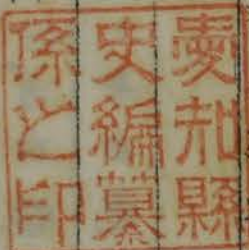 愛知縣
史編纂
係之印